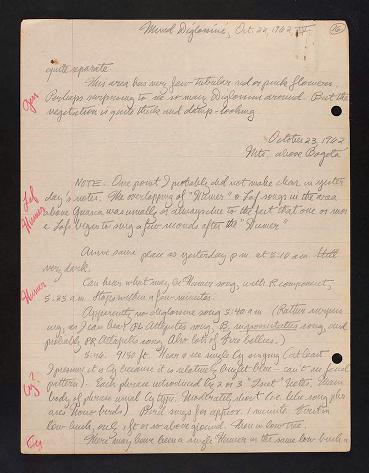 Mixed Diglossinii, Oct. 22, 1962, IV.
16
quite separate.
This area has very few tubular red or pink flowers.
Perhaps surprising to see so many Diglossini around. But the
vegetation is quite thick and damp-looking.
October 23, 1962
Mts. above Bogotá
NOTE: One point I probably did not make clear in yester
day's notes. The overlapping of "Humer" & Laf songs in the area
above Guasca was usually or always due to the fact that one or more
Lafs began to sing a few seconds after the "Humer"
Arrive same place as yesterday p.m. at 5:10 a.m. Still
very dark.
Can hear what may be Humer song, with R component,
5:25 a.m. Stops within a few minutes.
Apparently no diglossine song 5:40 a.m. (Rather surpris
ing, as I can hear Atlapetes song, song, and
probably Atlapetes song. Also lots of
5:46. 9150 ft. Hear a single Cy singing (at least
I presume it a Cy because it is relatively - can't see facial
pattern). Each phrase introduced by 2 or 3 "Tsit" Notes. Main
body of phrase usual Cy type. Moderately short (i.e. like song phr
ases Bird sings for approx. 1 minute. First in
low bush, only 1 ft or so above ground. Then in low tree.
There may have been a single Humer in the same low bush a
Laf
Humer
Humer
Cy?
Cy